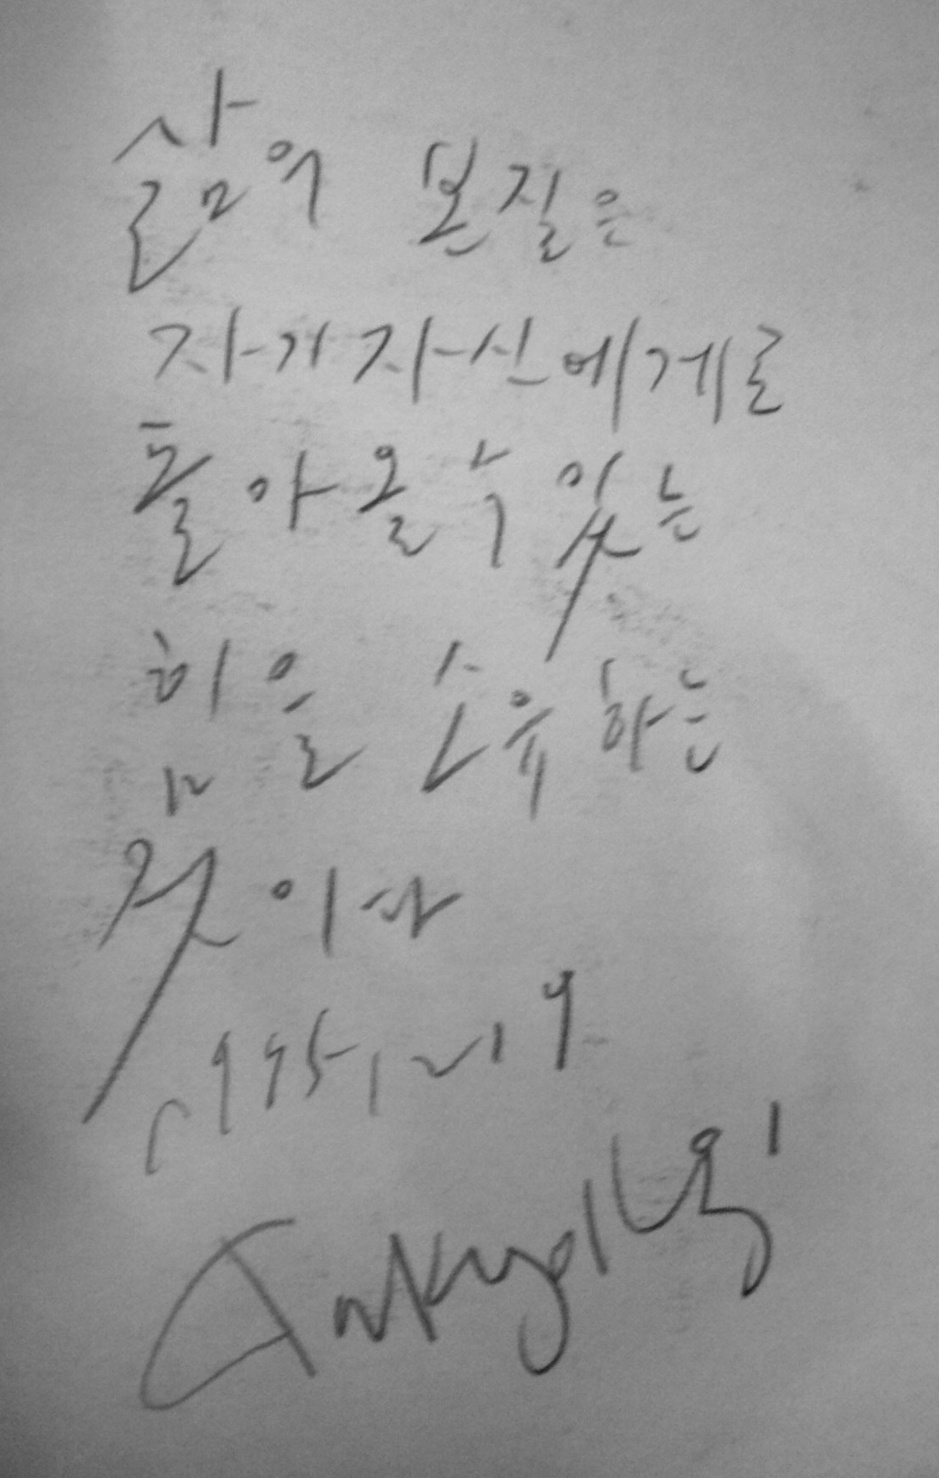 삶의 본질은
자기자신에게로
돌아올수 있는
힘을 소유하는
것이다
1995.12.19